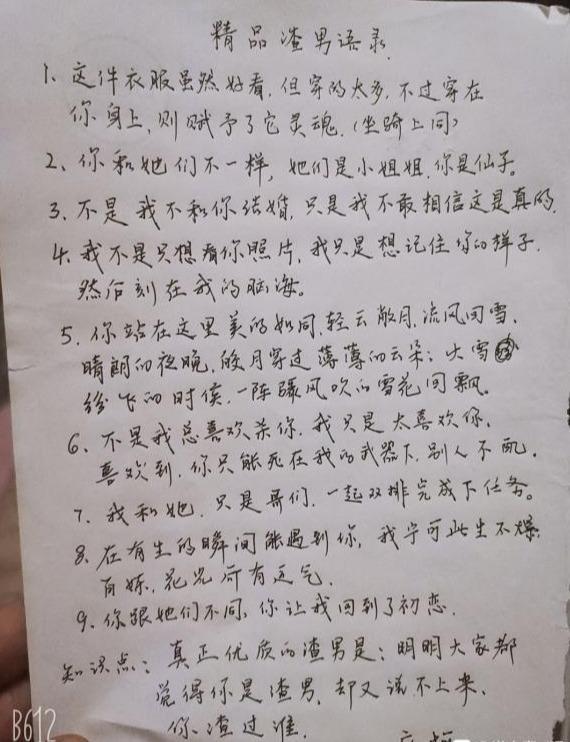 精品渣男语录.
1、这件衣服虽然好看,但穿的太多,不过穿在
你身上,则赋予了它灵魂.(坐骑上同)
2、你和她们不一样,她们是小姐姐.你是仙子。
3、不是我不和你结婚,只是我不敢相信这是真的.
4、我不是只想看你照片,我只是想记住你的样子.
然后刻在我的脑海。
5、你站在这里美的如同,轻云敝月,流风回雪,
晴朗的夜晚,皎月穿过薄薄的云朵;大雪
纷飞的时候,一阵骤风吹的雪花回飘。
6、不是我总喜欢杀你,我只是太喜欢你.
喜欢到,你只能死在我的武器下,别人不配.
7、我和她,只是哥们,一起双排完成下任务。
8、在有生的瞬间能遇到你,我宁可此生不爆
百炼,花光所有运气.
9、你跟她们不同,你让我回到了初恋.
知识点:真正优质的渣男是:明明大家都
觉得你是渣男,却又说不上来,
你渣过谁.
B612